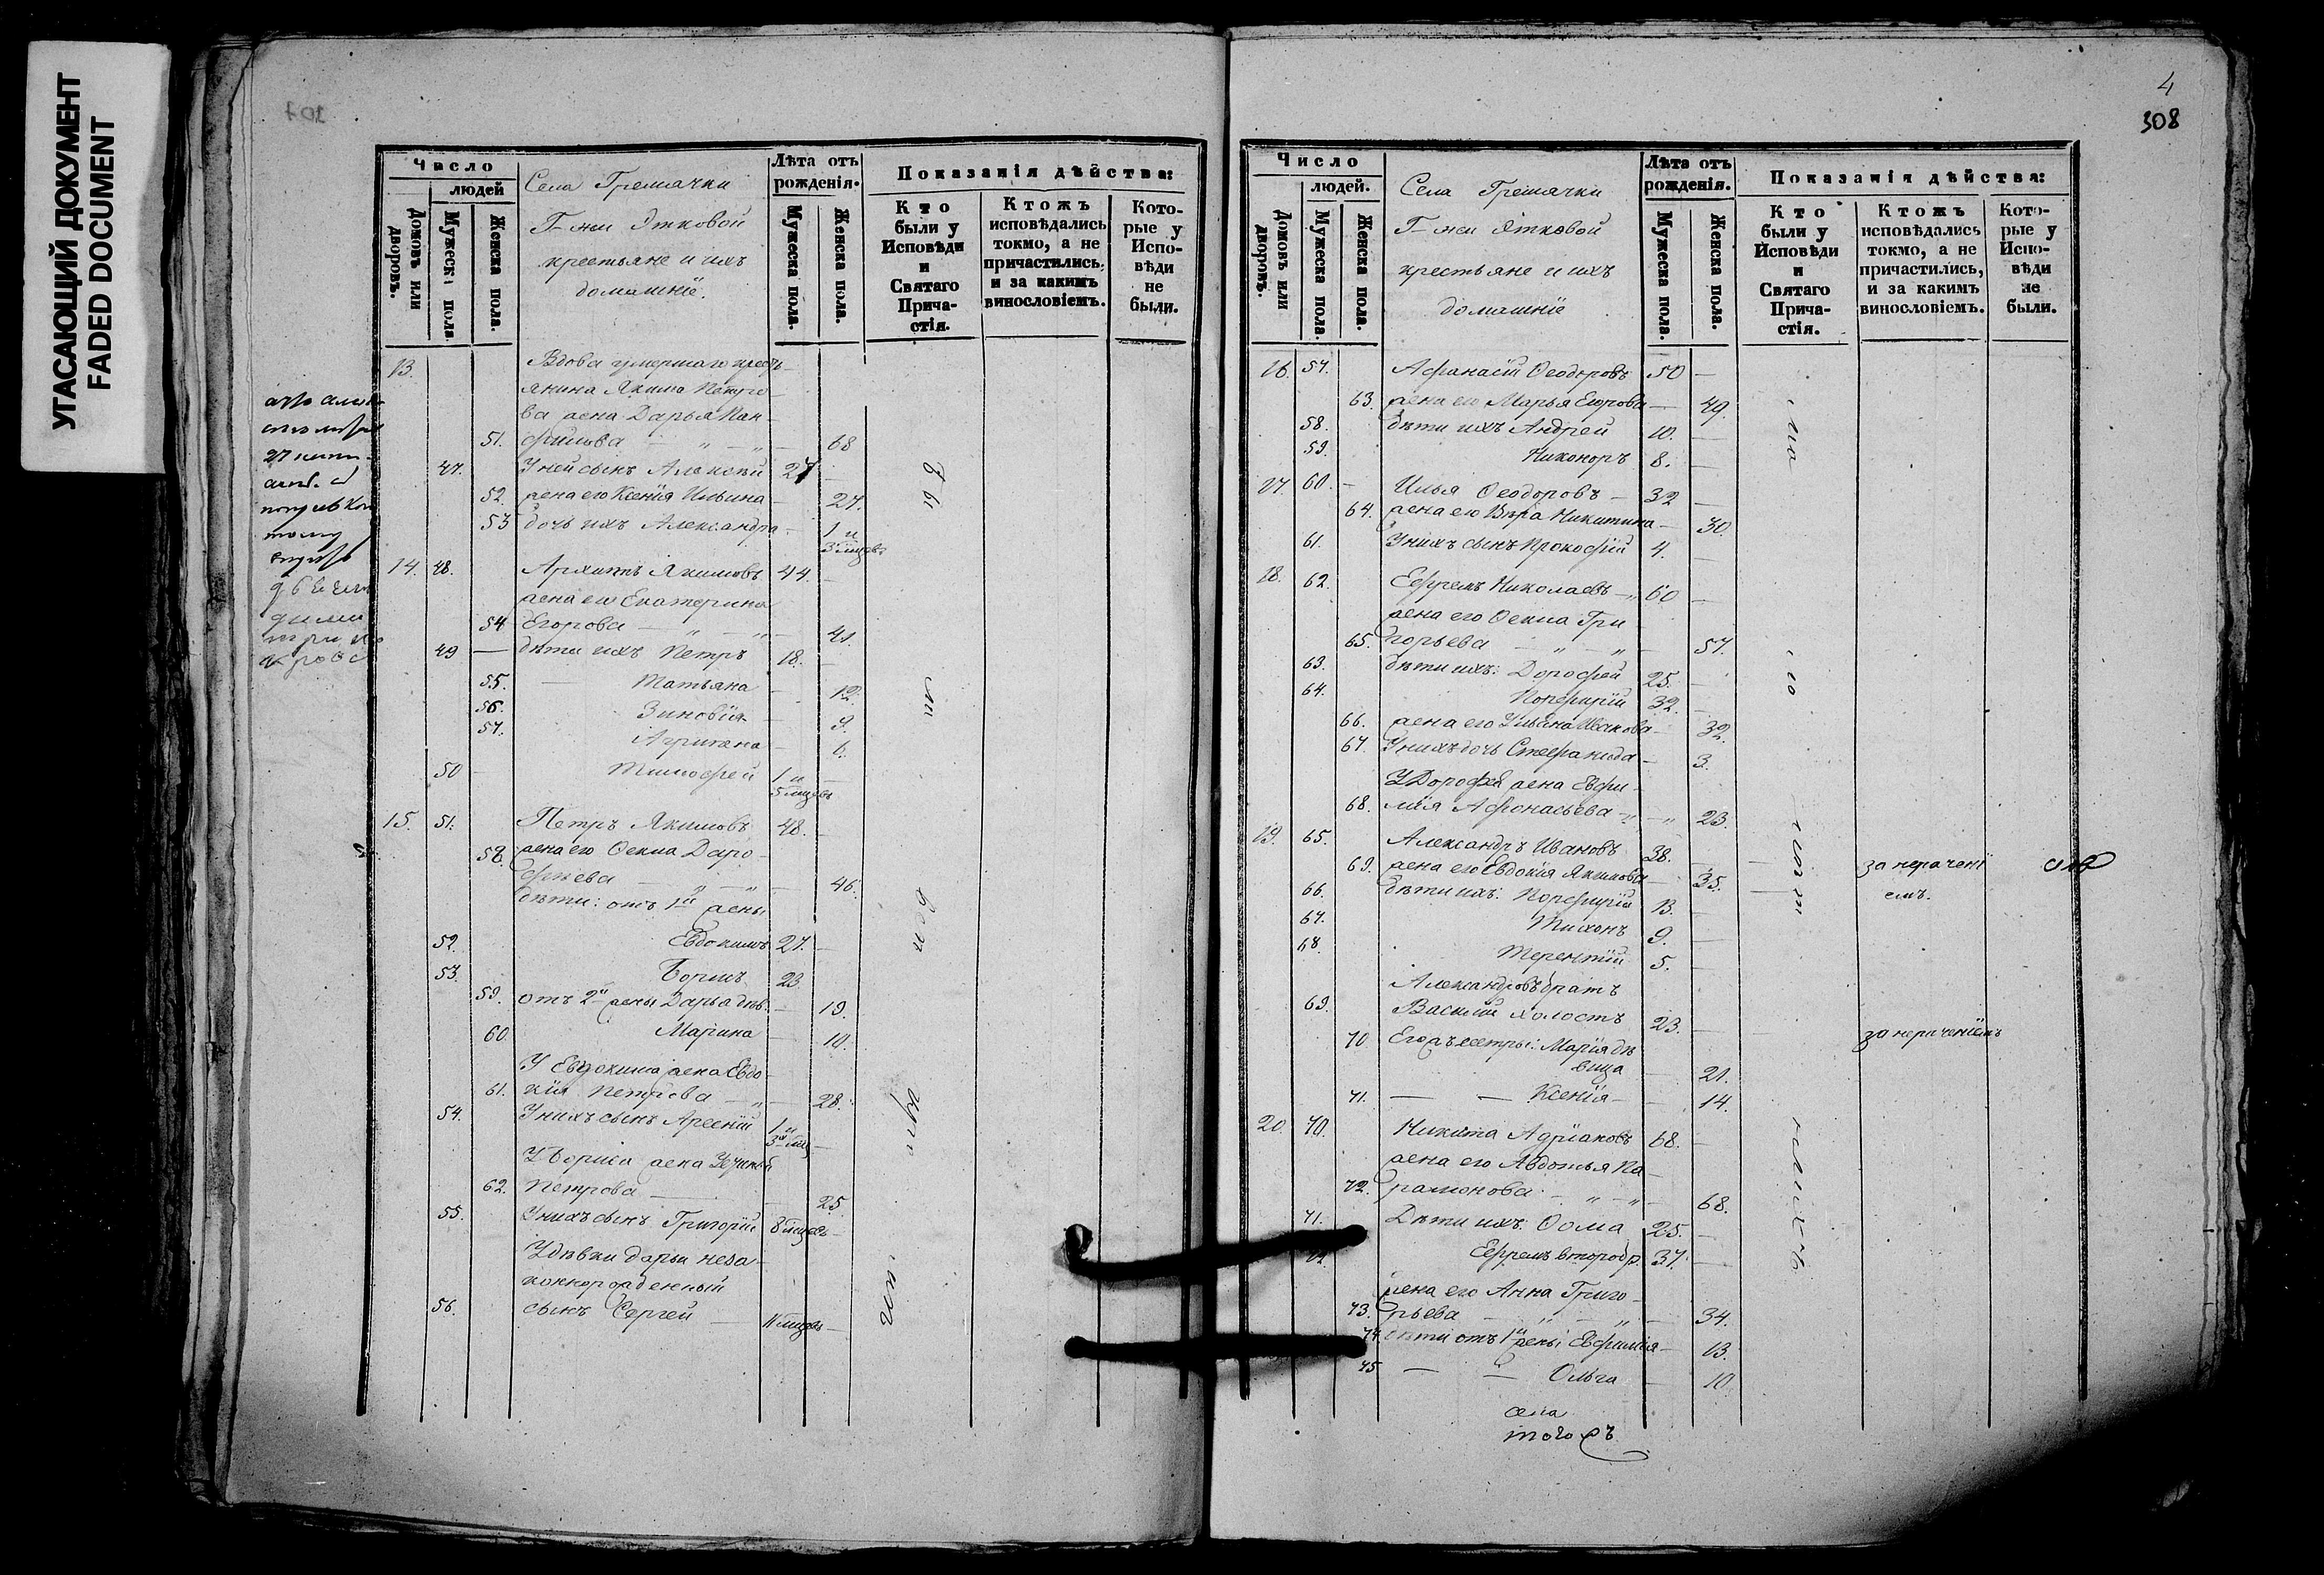 УГАСАЮЩИЙ ДОКУМЕНТ
FADED DOCUMENT
Число
людей
Домовъ или дворовъ.
Мужеска пола
Женска пола.
Села Гремячки
Г–жи Ятковой
крестьяне и ихъ
домашніе.
Лѣта отъ рожденія.
Мужеска пола.
Женска пола.
Показанія дѣйства:
Кто были у Исповѣди и Святаго Причастія.
Ктожъ исповѣдались токмо, а не причастились, и за какимъ винословіемъ.
Которые у Исповѣди не были.
13. Вдова умершаго кресть-
янина Якима Петро-
ва жена Дарья Пан-
51. филова — „ — „ — 68
47. У ней сынъ Алексѣй 27 —
52. жена его Ксенія Ильина — 27.
53 дочь ихъ Александра — 1 и
3 мѣсяцевъ
14. 48. Архипъ Якимовъ 44. —
жена его Екатерина
54 Егорова — „ — „ — 41.
49 — дѣти ихъ Петръ 18. —
55. — Татьяна — 12.
56. Зиновія — 9.
57. Агрипена — 6.
50 — Тимофей 1 и —
5 мѣсяцевъ
15. 51. Петръ Якимовъ 48. —
58. жена его Ѳекла Доро-
фѣева — „ — „ — 46.
дѣти: отъ 1й жены
52. Евдокимъ 27. —
53. Борисъ 23
59. отъ 2й жены Дарья дѣв. — 19.
60. Марина — 10.
У Евдокима жена Евдо-
61. кія Петрова — „ — 28.
54. У нихъ сынъ Арсеній 1 и
3 мѣс —
У Бориса жена
62. Петрова — 25.
55. У нихъ сынъ Григорій 8 мѣсяцевъ —
У дѣвки Дарьи неза-
конорожденный
56. сынъ Сергей — мѣсяцевъ —
4
308
Число
людей.
Домовъ или дворовъ.
Мужеска пола.
Женска пола.
Села Гремячки
Г–жи Ятковой
крестьяне и ихъ
домашніе
Лѣта отъ рожденія.
Мужеска пола.
Женска пола.
Показанія дѣйства:
Кто были у Исповѣди и Святаго Причастія.
Ктожъ исповѣдались токмо, а не причастились, и за какимъ винословіемъ.
Которые у Исповѣди не были.
16. 57. Афанасій Ѳеодоровъ 50 —
63. жена его Марья Егорова — 49.
58. дѣти ихъ Андрей 10. —
59. Никоноръ 8. —
17. 60. — Илья Ѳеодоровъ — 32 —
64. жена его Вѣра Никитина — 30.
61. У нихъ сынъ Прокофій 4. —
18. 62. Ефремъ Николаевъ — „ 60 —
жена его Ѳекла Гри
65. горьева — „ — „ — 57.
63. дѣти ихъ: Дорофей 25. —
64. Порфирій 32. —
66. жена его Ульяна Ивакова — 32.
67. У нихъ дочь Стефанида — 3.
У Дорофея жена Евфи-
68. мія Афонасьева — „ — „ 23.
19. 65. Александръ Ивановъ 38. — за нерачені
емъ.
69. жена его Евдокія Якимова — 35.
66. дѣти ихъ: Порфирій 13. —
67. Тихонъ 9. —
68. Терентій 5. —
Александровъ братъ
69. Василій холостъ 23. — за нераченіемъ
70 Егожъ сестры: Марія дѣ
вица — 21.
71. — — Ксенія — 14.
20. 70. Никита Адріановъ 68. —
жена его Авдотья Па-
72. рамонова — „ — „ — 68.
71. Дѣти ихъ: Ѳома 25. —
72 Ефремъ второбр. 37. —
жена его Анна Григо-
73. рьева — „ — „ — 34.
74. дѣти отъ 1й жены Евфимія — 13.
75 — — Ольга — 10.
села
тогожъ